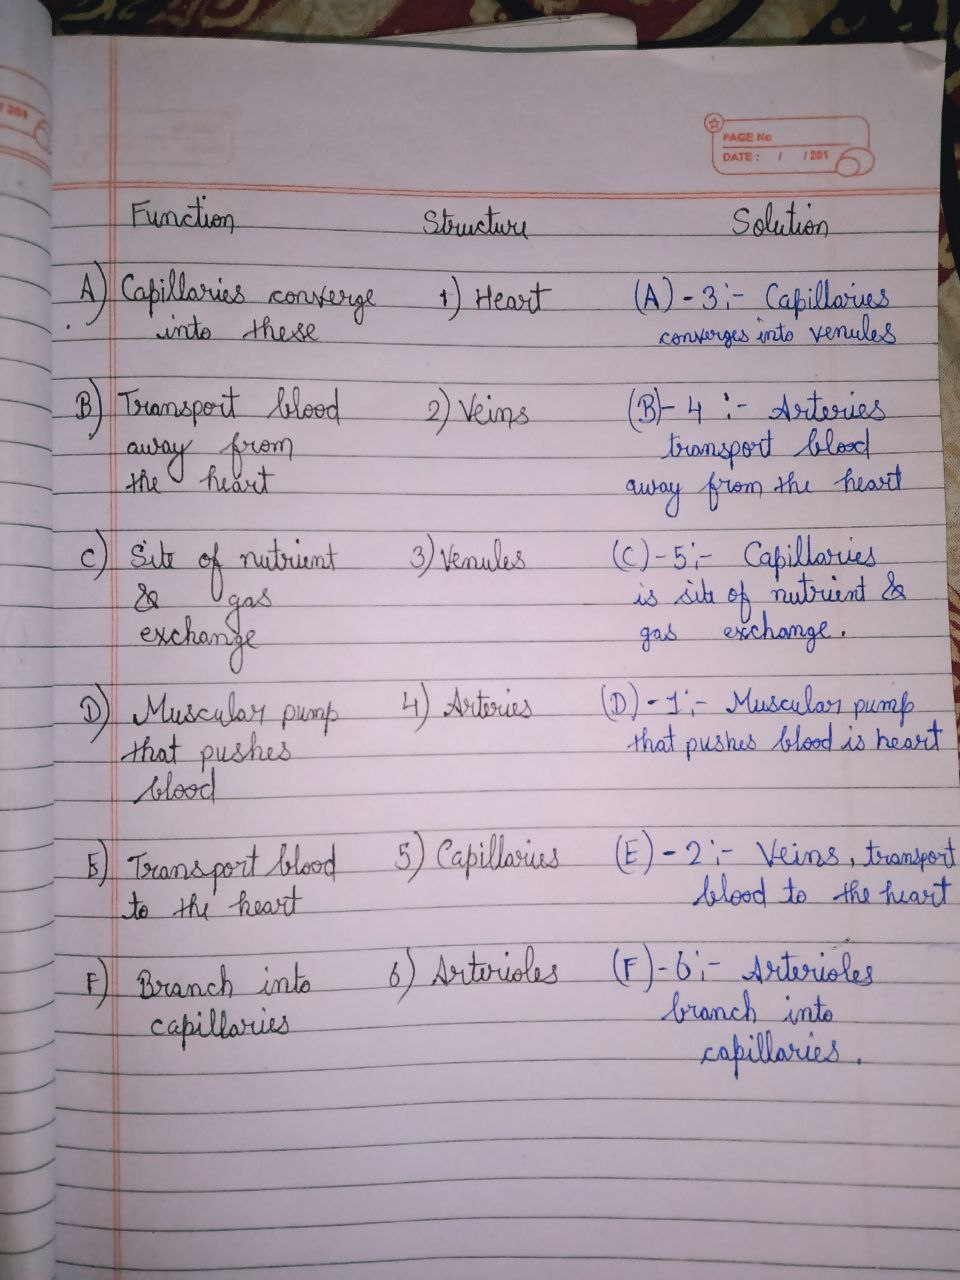 / 201
PAGE No
DATE : / / 201
Function Structure Solution
A) Capillaries converge 1) Heart (A) - 3 :- Capillaries
into these converges into venules
B) Transport blood 2) Veins (B) - 4 :- Arteries
away from transport blood
the heart away from the heart
C) Site of nutrient 3) Venules (C) - 5 :- Capillaries
& gas is site of nutrient &
exchange gas exchange.
D) Muscular pump 4) Arteries (D) - 1 :- Muscular pump
that pushes that pushes blood is heart
blood
E) Transport blood 5) Capillaries (E) - 2 :- Veins, transport
to the heart blood to the heart
F) Branch into 6) Arterioles (F) - 6 :- Arterioles
capillaries branch into
capillaries.